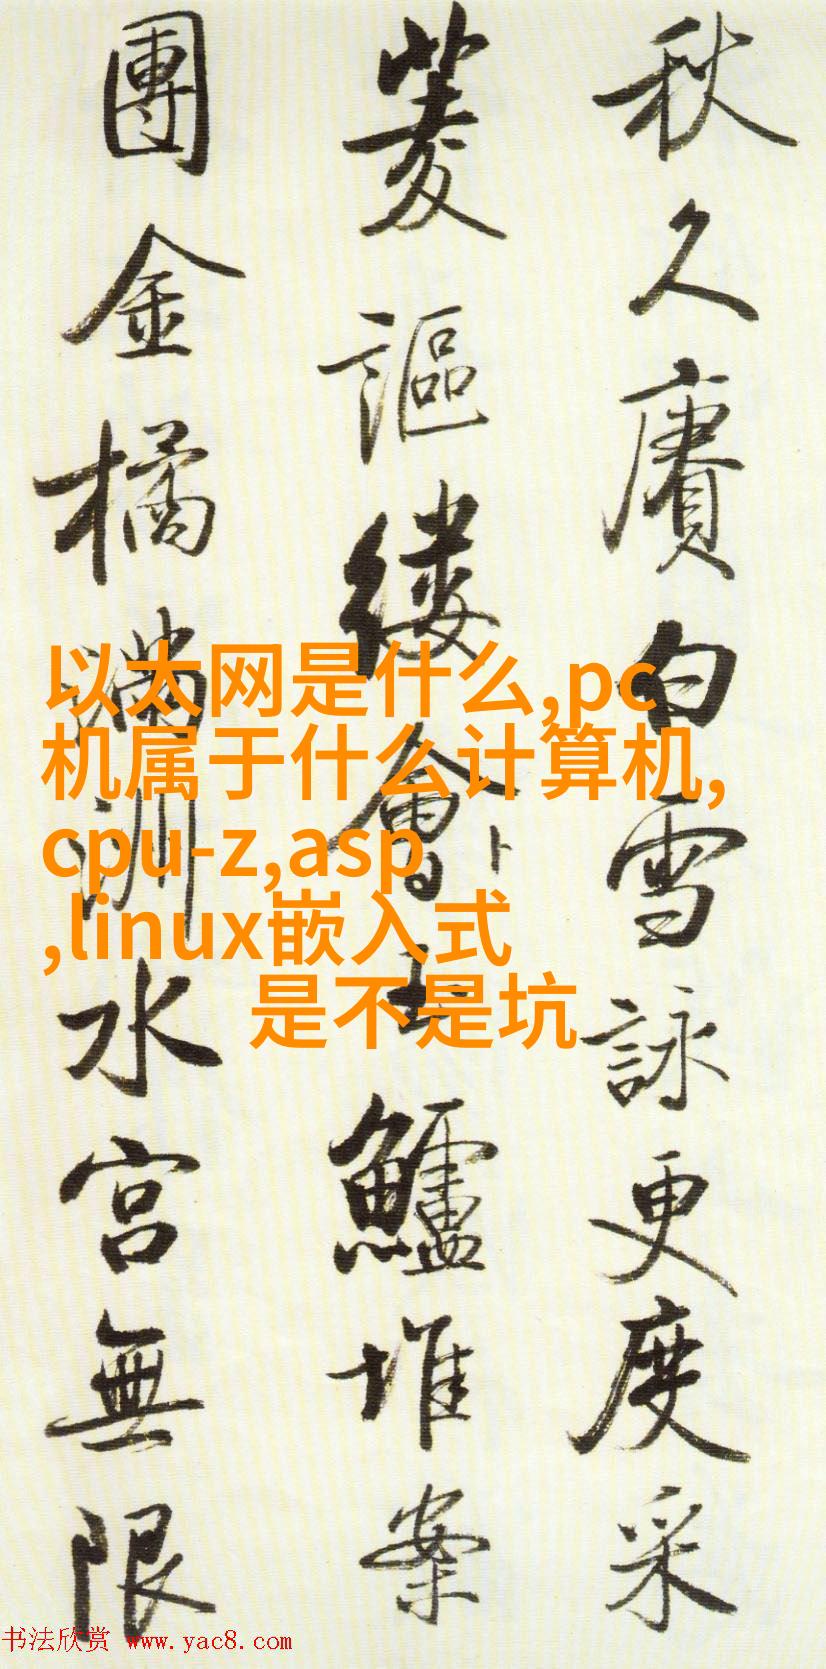 秋久賡白雪詠更度采
菱謳縷會卜玉鱸堆案
團金橘滿洲水宮無限
以太网是什么,pc
机属于什么计算机,
cpu-z,asp
,linux嵌入式
是不是坑
书法欣赏 www.yac8.com